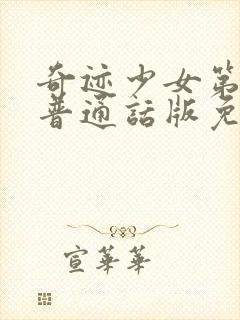 奇迹少女第
普通話版免
宣華華